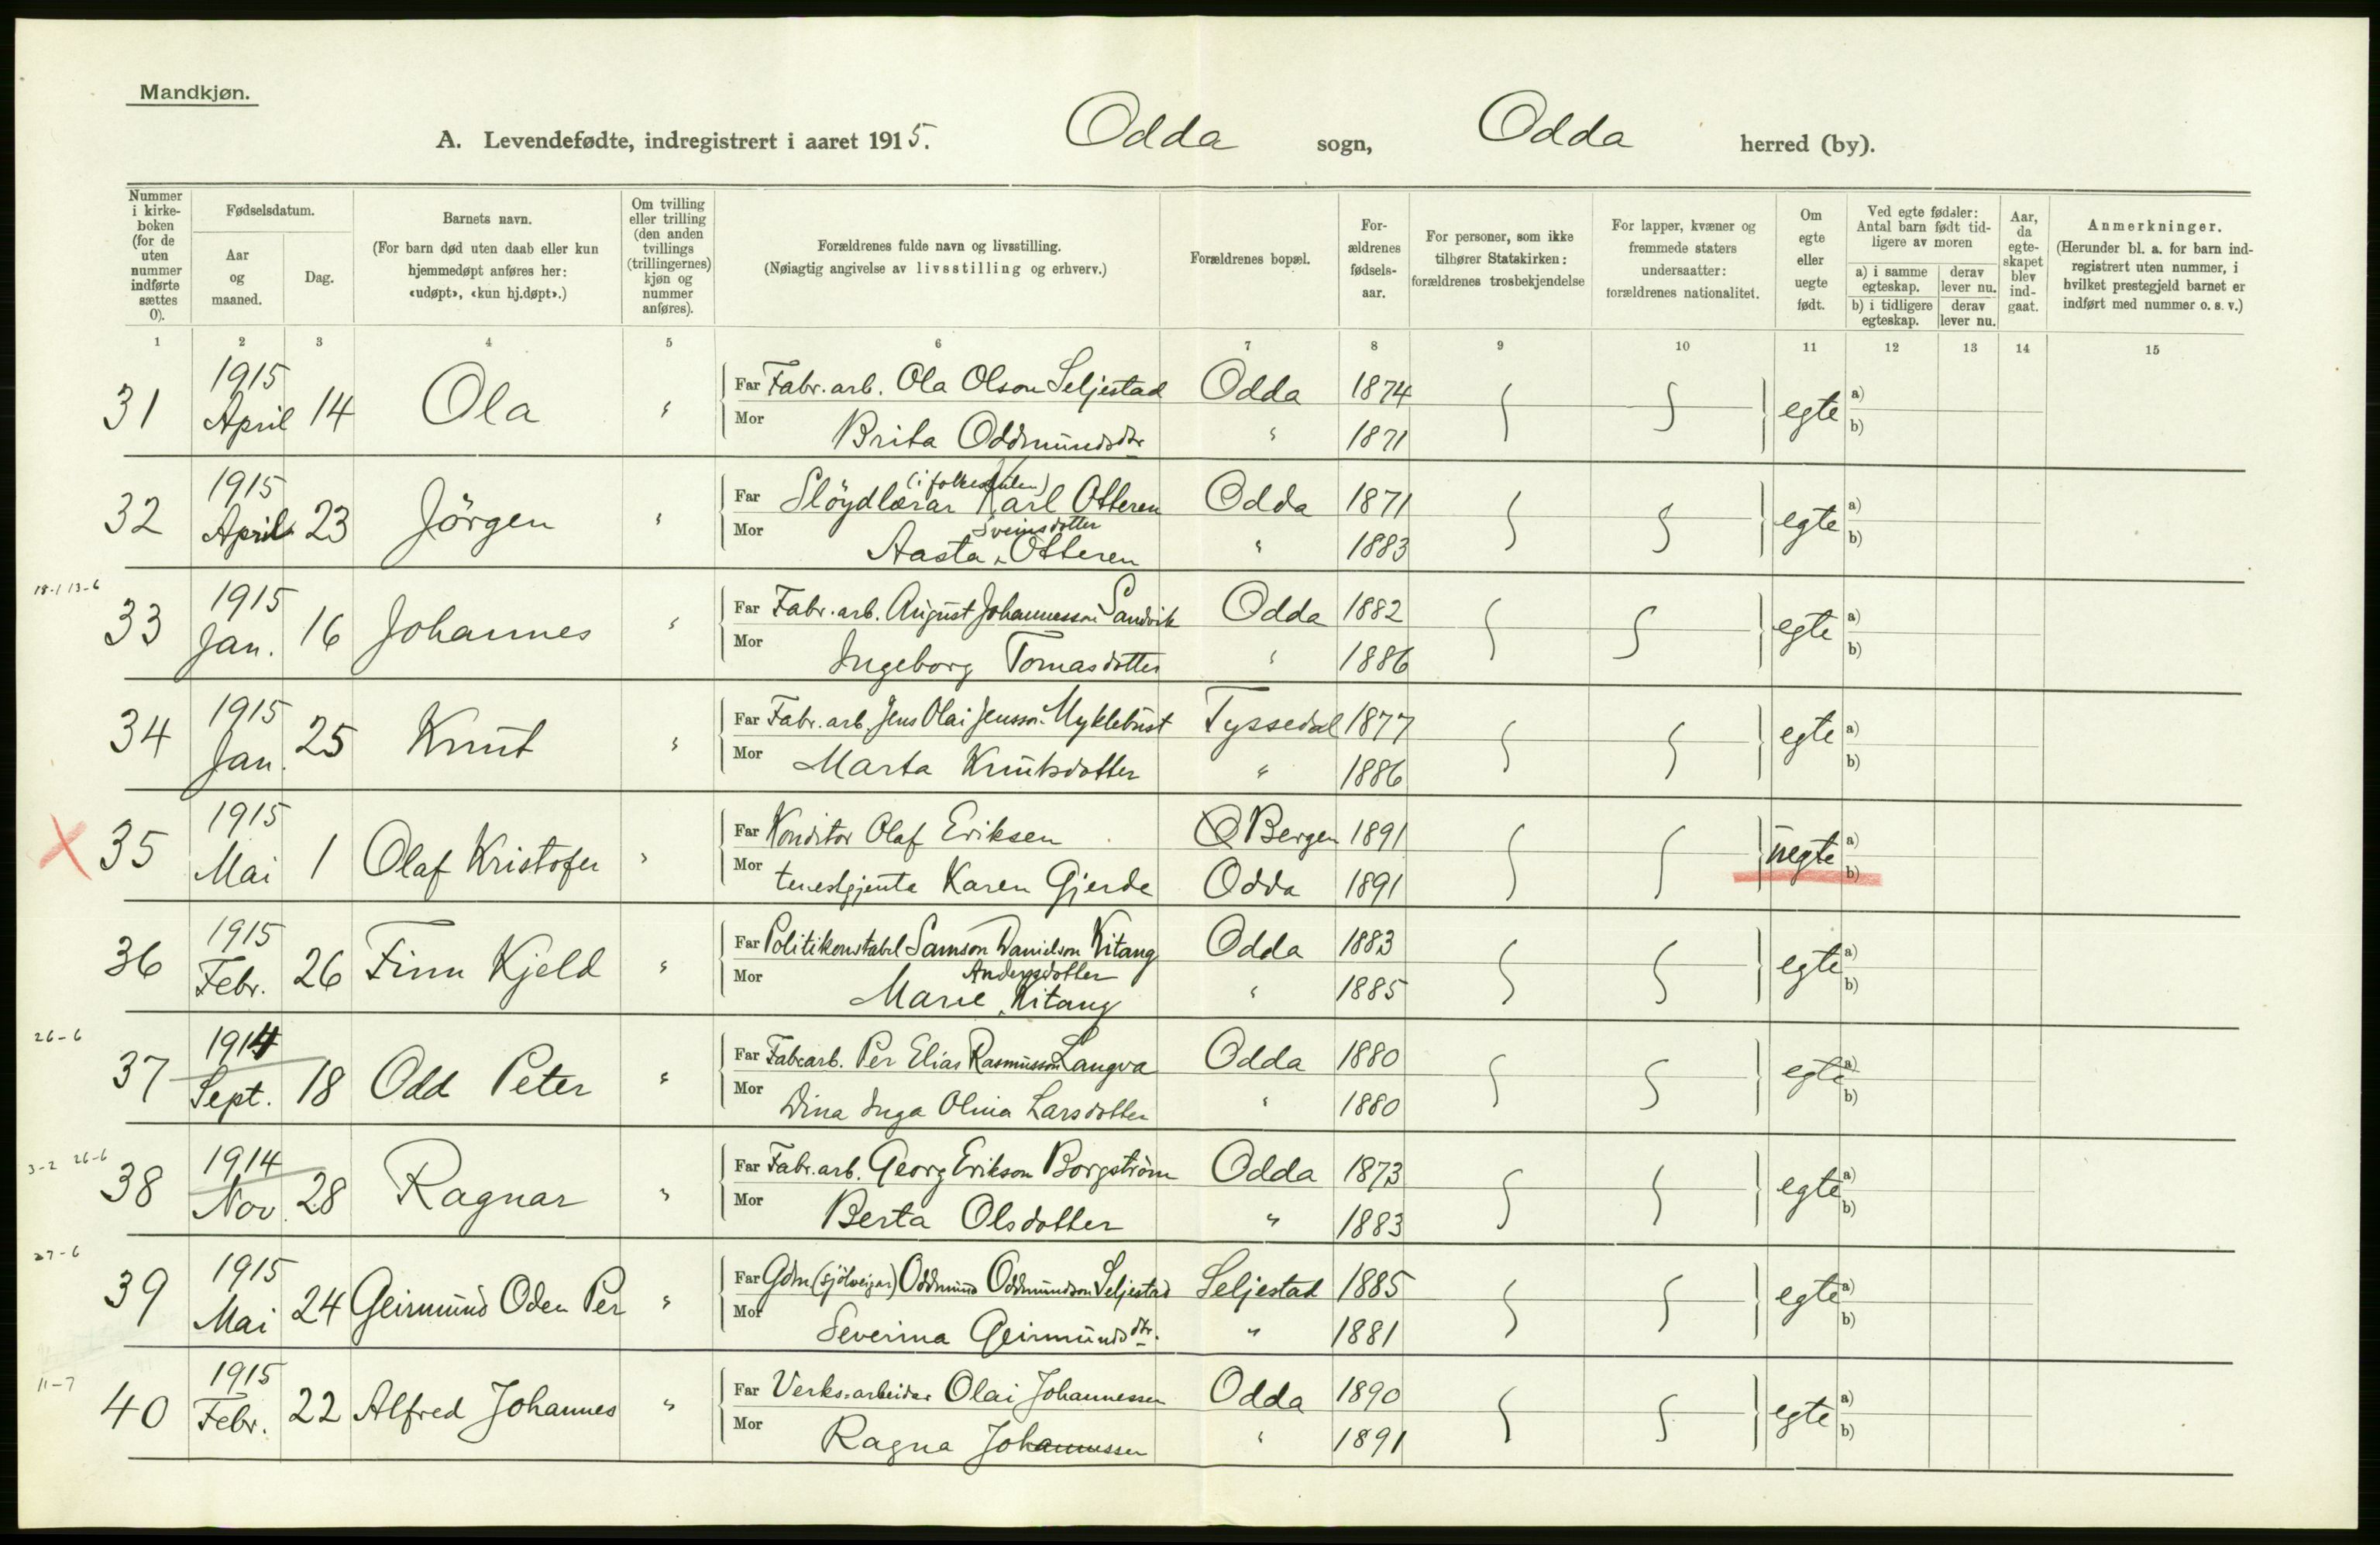 Mandkjøn.
A. Levendefødte, indregistrert i aaret 1915. Odda sogn, Odda herred (by).
Nummer i kirke-boken (for de uten nummer indførte sættes 0).
Fødselsdatum.
Aar og maaned.
Dag.
Barnets navn.
(For barn død uten daab eller kun hjemmedøpt anføres her: «udøpt», «kun hj.døpt».)
Om tvilling eller trilling (den anden tvillings (trillingernes) kjøn og nummer anføres).
Forældrenes fulde navn og livsstilling.
(Nøiagtig angivelse av livsstilling og erhverv.)
Forældrenes bopæl.
For-ældrenes fødsels-aar.
For personer, som ikke tilhører Statskirken: forældrenes trosbekjendelse
For lapper, kvæner og fremmede staters undersaatter: forældrenes nationalitet.
Om egte eller uegte født.
Ved egte fødsler: Antal barn født tid-ligere av moren
a) i samme egteskap.
derav lever nu.
b) i tidligere egteskap.
derav lever nu.
Aar, da egte-skapet blev ind-gaat.
Anmerkninger.
(Herunder bl. a. for barn ind-registrert uten nummer, i hvilket prestegjeld barnet er indført med nummer o. s. v.)
1 2 3 4 5 6 7 8 9 10 11 12 13 14 15
31 1915 April 14 Ola " Far Fabr. arb. Ola Olson Seljestad Odda 1874 egte a) b)
Mor Brita Oddmundsdtr " 1871
32 1915 April 23 Jörgen " Far Slöydlærar (i folkeskulen) Karl Otteren Odda 1871 egte a) b)
Mor Aasta Sveinsdotter Otteren " 1883
18-1 13-6
33 1915 Jan. 16 Johannes " Far Fabr. arb. August Johannesson Sandvik Odda 1882 egte a) b)
Mor Ingeborg Tomasdotter " 1886
34 1915 Jan. 25 Knut " Far Fabr. arb. Jens Olai Jensson Myklebust Tyssedal 1877 egte a) b)
Mor Marta Knutsdotter " 1886
35 1915 Mai 1 Olaf Kristofer " Far Konditor Olaf Eriksen Bergen 1891 uegte a) b)
Mor tenestgjente Karen Gjerde Odda 1891
36 1915 Febr. 26 Finn Kjeld " Far Politikonstabel Samson Danielson Kitang Odda 1883 egte a) b)
Mor Marie Andersdotter Kitang " 1885
26-6
37 1914 Sept. 18 Odd Peter " Far Fabr.arb. Per Elias Rasmusson Langva Odda 1880 egte a) b)
Mor Dina Inga Olina Larsdotter " 1880
3-2 26-6
38 1914 Nov. 28 Ragnar " Far Fabr. arb. Georg Erikson Borgström Odda 1873 egte a) b)
Mor Berta Olsdotter " 1883
27-6
39 1915 Mai 24 Geirmund Oden Per " Far Gdm (sjölveigar) Oddmund Oddmundson Seljestad Seljestad 1885 egte a) b)
Mor Severina Geirmundsdtr. " 1881
11-7
40 1915 Febr. 22 Alfred Johannes " Far Verks-arbeidar Olai Johannessen Odda 1890 egte a) b)
Mor Ragna Johannessen " 1891